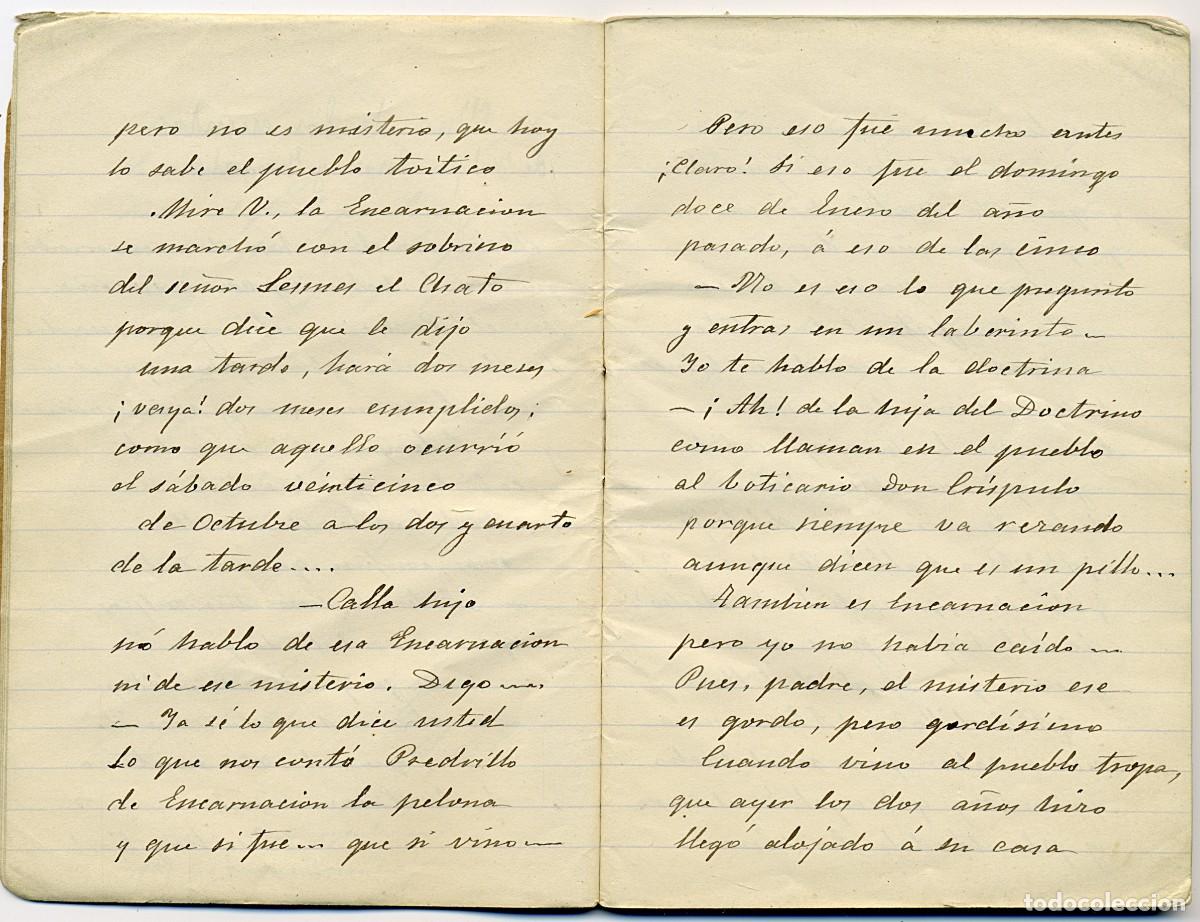 pero no es misterio, que hoy
lo sabe el pueblo toitico
Mire V., la Encarnacion
se marchó con el sobrino
del señor Lesmes el Chato
porque dice que le dijo
una tarde, hará dos meses
¡vaya! dos meses cumplidos;
como que aquello ocurrió
el sábado veinticinco
de Octubre a las dos y cuarto
de la tarde....
—Calla hijo
nó hablo de esa Encarnacion
ni de ese misterio. Digo....
— Ya sé lo que dice usted
Lo que nos contó Predrillo
de Encarnacion la pelona
y que si fue... que si vino...
Pero eso fue mucho antes
¡Claro! Si eso fue el domingo
doce de Enero del año
pasado, á eso de las cinco
— No es eso lo que pregunto
y entras en un laberinto...
Yo te hablo de la doctrina
— ¡Ah! de la hija del Doctrino
como llaman en el pueblo
al boticario Don Críspulo
porque siempre va rezando
aunque dicen que es un pillo...
Tambien es Encarnacion
pero yo no habia caído...
Pues, padre, el misterio ese
es gordo, pero gordísimo
Cuando vino al pueblo tropa,
que ayer los dos años hizo
llegó alojado á su casa
todocoleccion